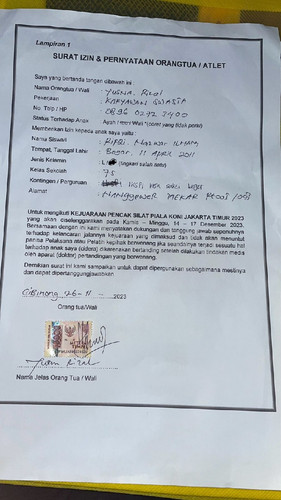 Lampiran 1
SURAT IZIN & PERNYATAAN ORANGTUA / ATLET
Saya yang bertanda tangan dibawah ini :
Nama Orangtua / Wali : Yusna Rizal
Pekerjaan : KARYAWAN SWASTA
No. Telp / HP : 0896 0292 3900
Status Terhadap Anak : Ayah /
Memberikan izin kepada anak saya yaitu :
Nama Siswa/i : Rifqi
Tempat, Tanggal Lahir : Bogor, 11 April 2011
Jenis Kelamin : L
Kelas Sekolah
Kontingen / Perguruan :
Alamat : NANGGEWER MEKAR
Untuk mengikuti KEJUARAAN PENCAK SILAT PIALA KONI JAKARTA TIMUR 2023
yang akan diselenggarakan pada Kamis – Minggu, 14 – 17 Desember 2023.
Bersamaan dengan ini menyatakan dukungan dan tanggung jawab sepenuhnya
terhadap kelancaran jalannya kejuaraan yang dimaksud dan tidak akan menuntut
panitia Pelaksana atau Pelatih kapihak berwenang jika seandainya terjadi sesuatu hal
terhadap anak saya (cidera) dikarenakan bertanding setelah dilakukan tindakan medis
oleh aparat (dokter) pertandingan yang berwenang.
Demikian surat ini kami sampaikan untuk dapat dipergunakan sebagaimana mestinya
dan dapat dipertanggungjawabkan.
Cibinong, 26-11 2023
Orang tua/Wali
Nama Jelas Orang Tua / Wali